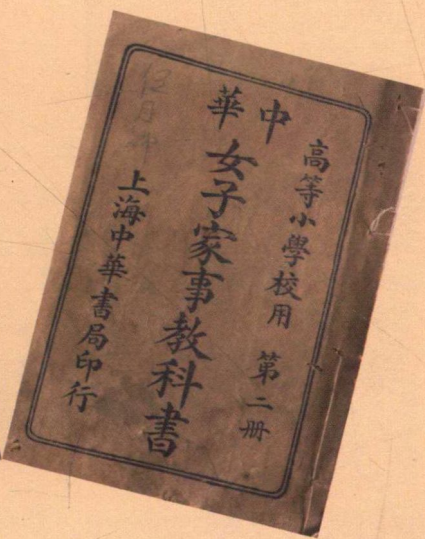 高等小學校用　第二册
中華
女子家事教科書
上海中華書局印行